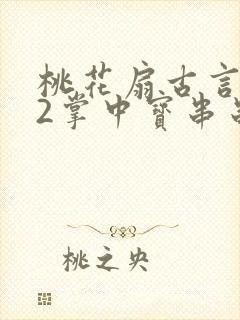 桃花扇古言
2掌中寶串
桃之央